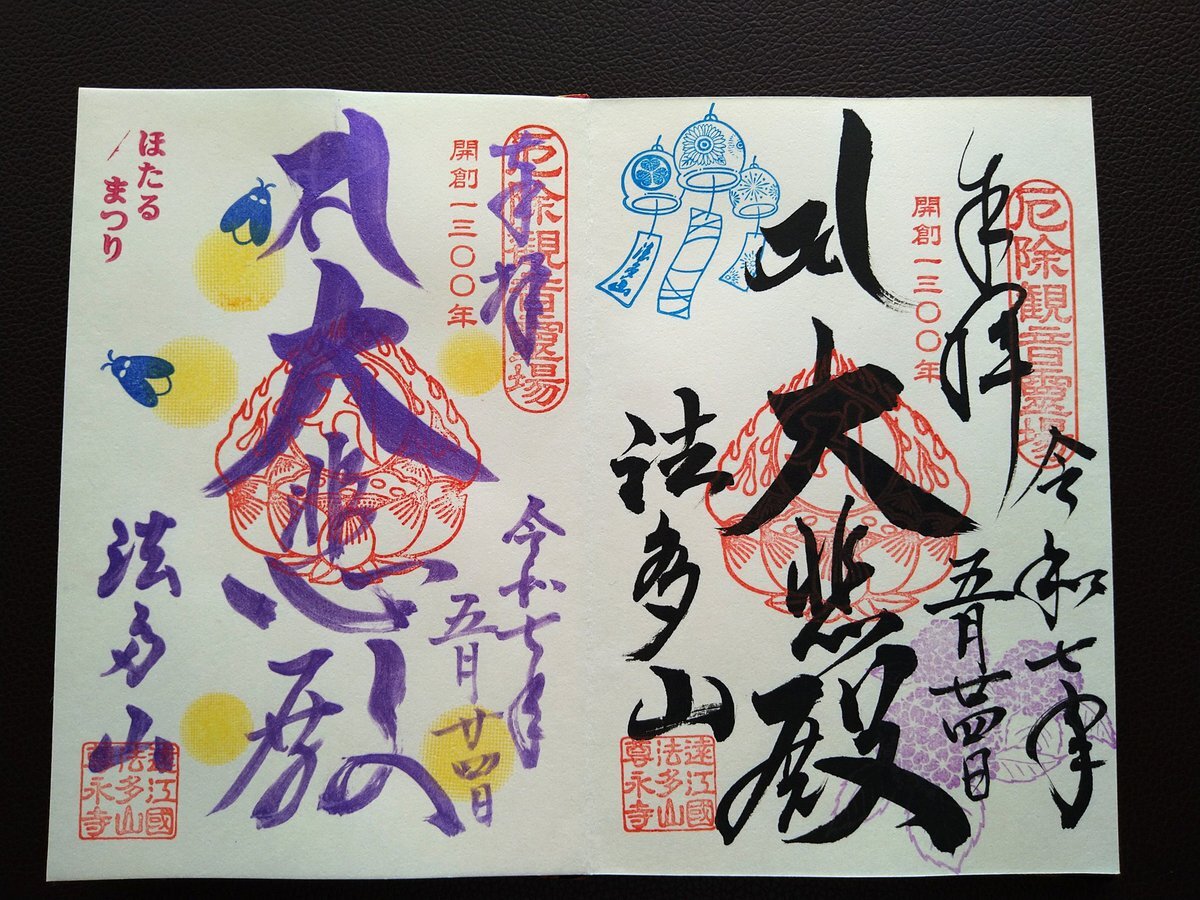 厄除観音霊場
奉拝
開創一三〇〇年
令和七年
五月廿四日
大悲殿
法多山
法多山
遠江國
法多山
尊永寺
厄除観音霊場
奉拝
開創一三〇〇年
令和七年
五月廿四日
大悲殿
法多山
遠江國
法多山
尊永寺
ほたる
まつり